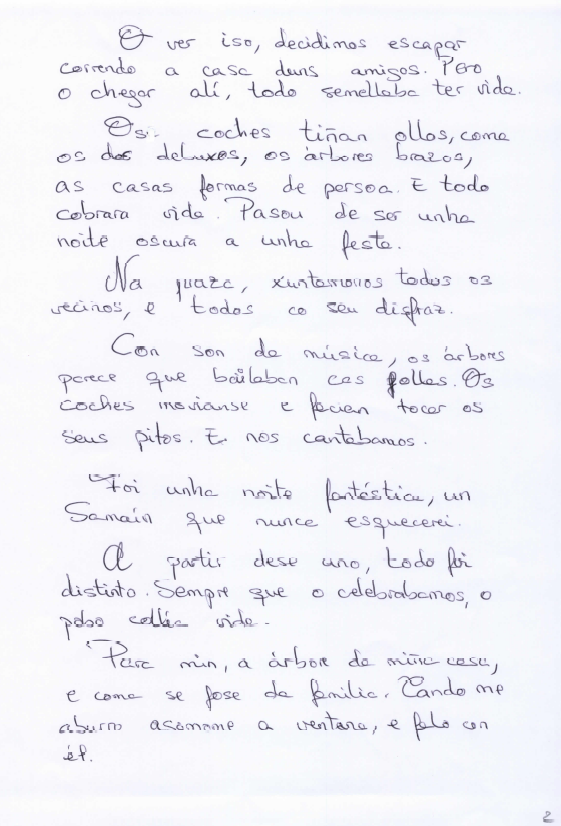 O ver iso, decidimos escapar
correndo a casa duns amigos. Pero
o chegar alí, todo semellaba ter vida.
Os coches tiñan ollos, coma
os dos debuxos, os árbores brazos,
as casas formas de persoa. E todo
cobrara vida. Pasou de ser unha
noite oscura a unha festa.
Na praza, xuntamonos todos os
veciños, e todos co seu disfraz.
Con son da música, os árbores
parece que bailaban cas follas. Os
coches movianse e facían tocar os
seus pitos. E nos cantabamos.
Foi unha noite fantástica, un
Samaín que nunca esquecerei.
A partir dese ano, todo foi
distinto. Sempre que o celebrabamos, o
pobo collía vida.
Para min, a árbore da miña casa,
e coma se fose da familia. Cando me
aburro asomome a ventana, e falo con
él.
2